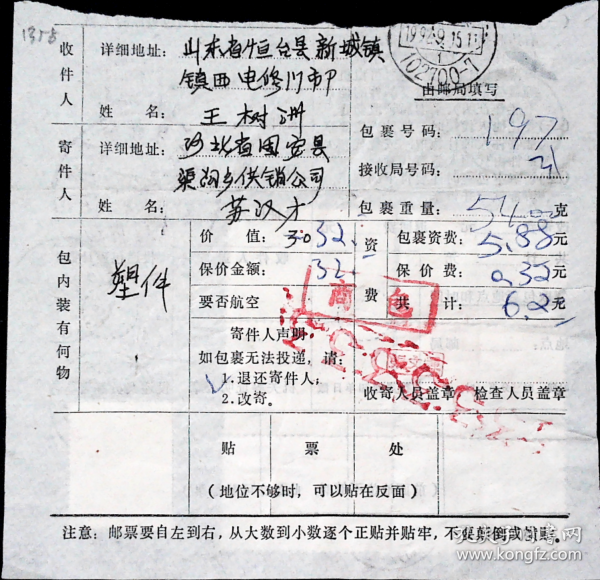 1355
收件人
详细地址：山东省恒台县新城镇
镇西电修门市P
姓名：王树洲
寄件人
详细地址：河北省固安县
渠沟乡供销公司
姓名：苏汉才
102700-7
由邮局填写
包裹号码：197
接收局号码：
包裹重量：克
包内装有何物
塑件
价值：32.
保价金额：32.
要否航空
资费
包裹资费：5.88元
保价费：0.32元
共计：6.2元
商包
寄件人声明：
如包裹无法投递，请：
√1.退还寄件人；
2.改寄。
收寄人员盖章 检查人员盖章
贴票处
（地位不够时，可以贴在反面）
注意：邮票要自左到右，从大数到小数逐个正贴并贴牢，不要颠倒或折叠。
孔夫子旧书网
www.kongfz.com